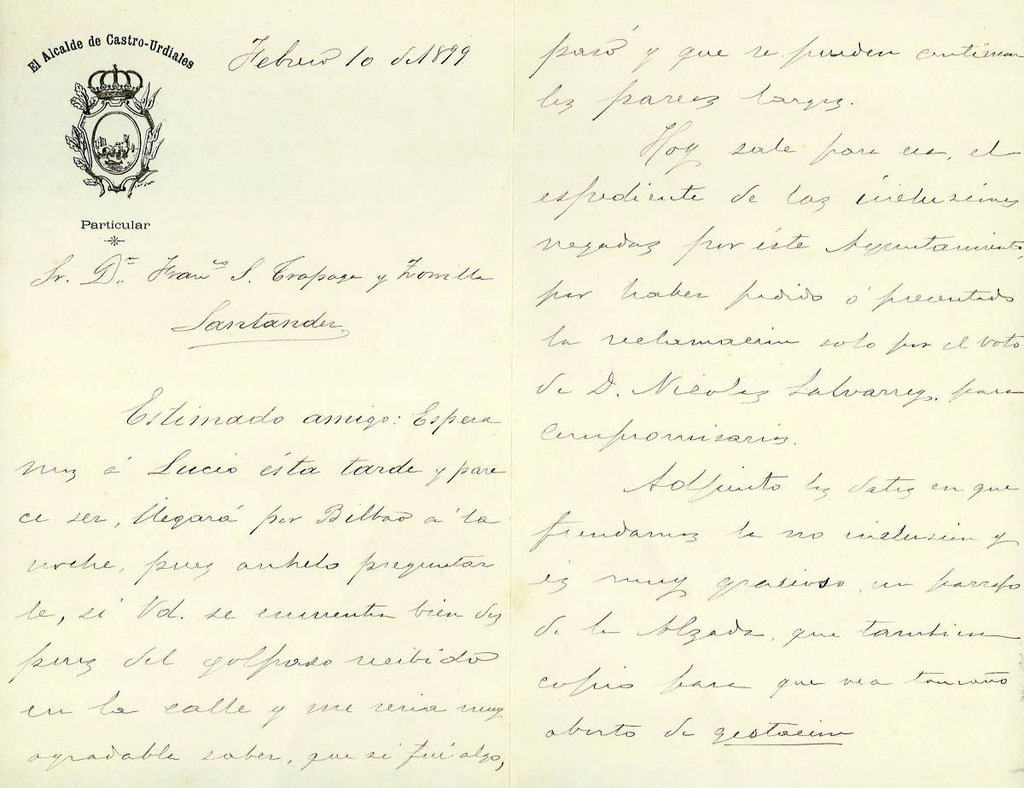 El Alcalde de Castro-Urdiales
Particular
Febrero 10 de 1899
Sr. Dn. Franco S. Trapaga y Zorrilla
Santander
Estimado amigo: Espera
mos á Lucio ésta tarde y pare
ce ser, llegará por Bilbao a la
noche, pues anhelo preguntar
le, si Vd. se encuentra bien des
pues del golpazo recibido
en la calle y me seria muy
agradable saber, que si fué algo,
pasó y que se pueden continuar
los paseos largos.
Hoy sale para esa, el
espediente de las inclusiones
negadas por éste Ayuntamiento,
por haber pedido ó presentado
la reclamacion solo por el voto
de D. Nicolas Salvarrey, para
compromisarios.
Adjunto los datos en que
fundamos la no inclusion y
es muy gracioso, un parrafo
de la Alzada, que tambien
copio para que vea tamaño
aborto de gestacion